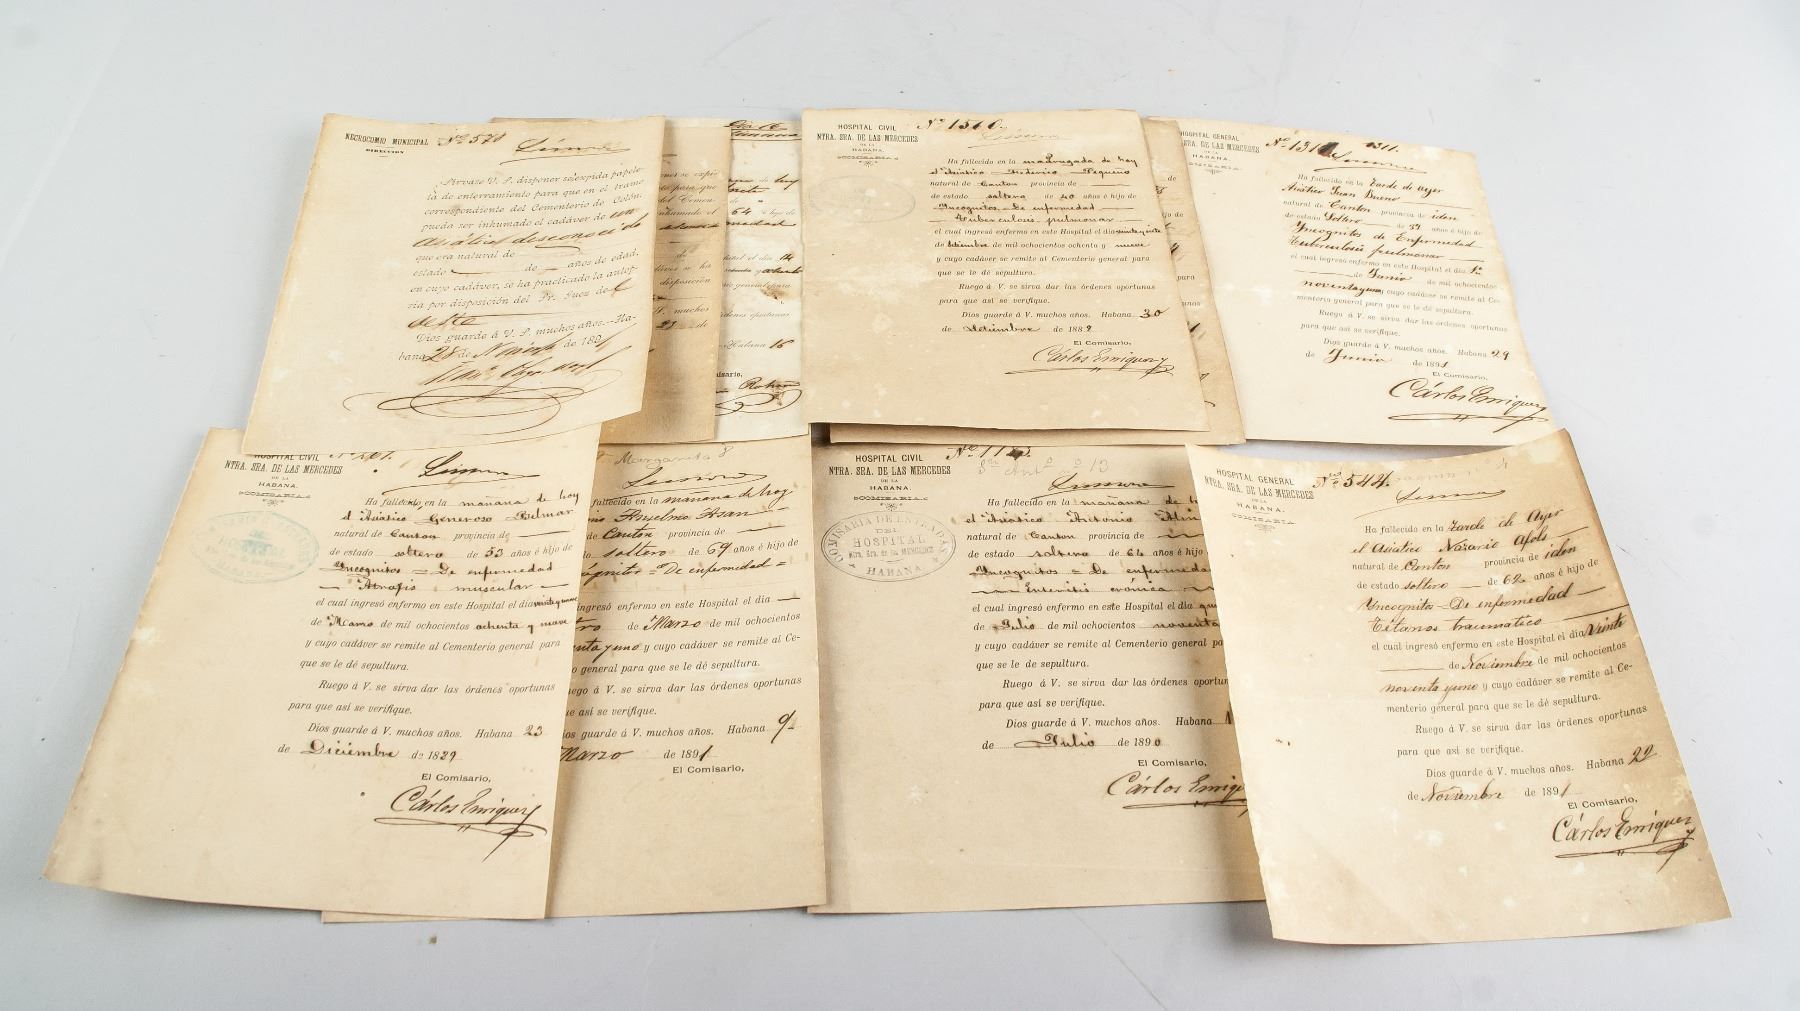 NECROCOMIO MUNICIPAL Nº 570
DIRECCION
Sírvase V. S. disponer se expida papele-
tá de enterramiento para que en el tramo
correspondiente del Cementerio de Colón,
pueda ser inhumado el cadáver de un
asiático desconocido
que era natural de
estado de años de edad,
en cuyo cadáver, se ha practicado la autop-
sia por disposición del Sr. Juez de
Dios guarde á V. S. muchos años.—Ha-
bana 28 de de 189
se expi
para que
del Cemen
inhumado el
de
se ha
disposición
muchos
23 de
64
el día 14
general para
órdenes oportunas
Habana 16
misario,
HOSPITAL CIVIL Nº 1560
NTRA. SRA. DE LAS MERCEDES
DE LA
HABANA.
COMISARIA
Ha fallecido en la madrugada de hoy
el Asiático Federico Pequeño
natural de Canton provincia de
de estado soltero de 40 años é hijo de
Yncognitos = De enfermedad
Tuberculosis pulmonar
el cual ingresó enfermo en este Hospital el dia veinte y siete
de Setiembre de mil ochocientos ochenta y nueve
y cuyo cadáver se remite al Cementerio general para
que se le dé sepultura.
Ruego á V. se sirva dar las órdenes oportunas
para que asi se verifique.
Dios guarde á V. muchos años. Habana 30
de Setiembre de 1889
El Comisario,
Cárlos Enriquez
HOSPITAL GENERAL 1311.
SRA. DE LAS MERCEDES
DE LA
HABANA.
COMISARIA
Ha fallecido en la Tarde de Ayer
Asiático Juan Bueno
natural de Canton provincia de iden
de estado Soltero de 39 años é hijo de
Yncognitos de Enfermedad
Tuberculosis pulmonar
el cual ingresó enfermo en este Hospital el dia 1º
de Junio de mil ochocientos
noventa y uno y cuyo cadáver se remite al Ce-
menterio general para que se le dé sepultura.
Ruego á V. se sirva dar las órdenes oportunas
para que así se verifique.
Dios guarde á V. muchos años. Habana 29
de Junio de 1891
El Comisario,
Cárlos Enriquez
HOSPITAL CIVIL
NTRA. SRA. DE LAS MERCEDES
DE LA
HABANA.
COMISARIA
HOSPITAL
HABANA
Ha fallecido en la mañana de hoy
el Asiático Generoso Belmar
natural de Canton provincia de
de estado soltero de 53 años é hijo de
Yncognitos = De enfermedad
Atrofis muscular
el cual ingresó enfermo en este Hospital el dia veinte y nueve
de Marzo de mil ochocientos ochenta y nueve
y cuyo cadáver se remite al Cementerio general para
que se le dé sepultura.
Ruego á V. se sirva dar las órdenes oportunas
para que asi se verifique.
Dios guarde á V. muchos años. Habana 23
de Diciembre de 1889
El Comisario,
Cárlos Enriquez
Margarita 8
fallecido en la mañana de hoy
Anselmo Asan
de Canton provincia de
soltero de 69 años é hijo de
De enfermedad =
ingresó enfermo en este Hospital el dia
de Marzo de mil ochocientos
y uno y cuyo cadáver se remite al Ce-
general para que se le dé sepultura.
uego á V. se sirva dar las órdenes oportunas
ue así se verifique.
os guarde á V. muchos años. Habana 9
Marzo de 1891
El Comisario,
HOSPITAL CIVIL
NTRA. SRA. DE LAS MERCEDES
DE LA
HABANA.
COMISARIA
COMISARIA DE ENTRADAS
DEL
HOSPITAL
Ntra. Sra. de las MERCEDES
HABANA
Ha fallecido en la mañana de
el Asiático Antonio
natural de Canton provincia de
de estado soltero de 64 años é hijo
Yncognitos = De enfermeda
Enteritis crónica
el cual ingresó enfermo en este Hospital el dia
de Julio de mil ochocientos noventa
y cuyo cadáver se remite al Cementerio general
que se le dé sepultura.
Ruego á V. se sirva dar las órdenes oportun
para que así se verifique.
Dios guarde á V. muchos años. Habana
de Julio de 1890
El Comisario,
Cárlos Enriqu
HOSPITAL GENERAL Nº 544.
NTRA. SRA. DE LAS MERCEDES
DE LA
HABANA.
COMISARIA
Ha fallecido en la Tarde de Ayer
el Asiático Nazario Apols
natural de Canton provincia de iden
de estado soltero de 62 años é hijo de
Yncognitos - De enfermedad
Tétanos traumatico
el cual ingresó enfermo en este Hospital el dia Veinte
de Noviembre de mil ochocientos
noventa y uno y cuyo cadáver se remite al Ce-
menterio general para que se le dé sepultura.
Ruego á V. se sirva dar las órdenes oportunas
para que así se verifique.
Dios guarde á V. muchos años. Habana 22
de Noviembre de 1891
El Comisario,
Cárlos Enriquez